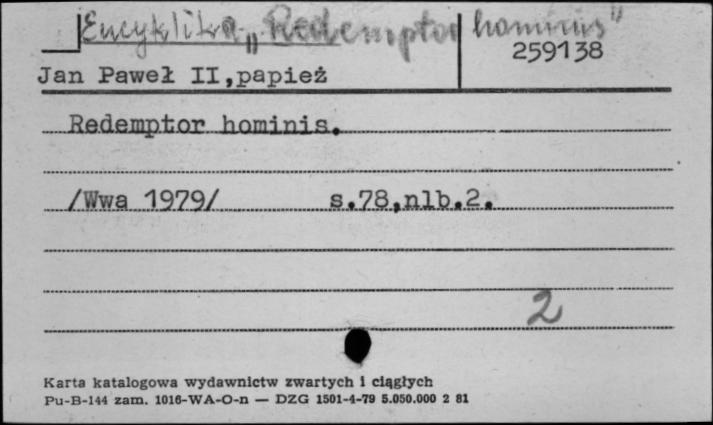 Encyklika „Redemptor hominis"
259138
Jan Paweł II,papież
Redemptor hominis.
/Wwa 1979/ s.78,nlb.2.
2
Karta katalogowa wydawnictw zwartych i ciągłych
Pu-B-144 zam. 1016-WA-O-n — DZG 1501-4-79 5.050.000 2 81